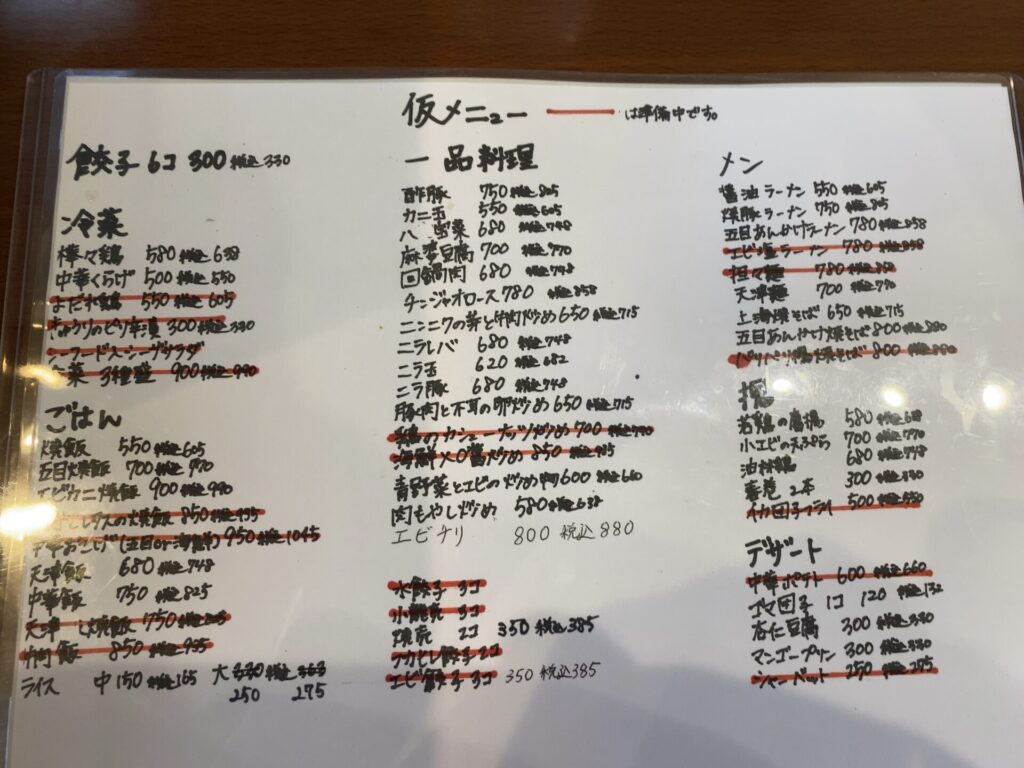 仮メニュー
は準備中です。
餃子 6コ 300 税込330
冷菜
棒々鶏 580 税込638
中華くらげ 500 税込550
よだれ鶏 550 税込605
きゅうりのピリ辛漬 300 税込330
シーフード サラダ
冷菜3種盛 900 税込990
ごはん
焼飯 550 税込605
五目焼飯 700 税込770
エビカニ焼飯 900 税込990
とレタスの焼飯 850 税込935
中華おこげ(五目or海鮮) 950 税込1045
天津飯 680 税込748
中華飯 750 税込825
天津 焼飯 750 税込
飯 850 税込935
ライス 中150 税込165 大330 税込363
250 275
一品料理
酢豚 750 税込805
カニ玉 550 税込605
八宝菜 680 税込748
麻婆豆腐 700 税込770
回鍋肉 680 税込748
チンジャオロース 780 税込858
ニンニクの芽と牛肉炒め 650 税込715
ニラレバ 680 税込748
ニラ玉 620 税込682
ニラ豚 680 税込748
豚肉と木耳の卵炒め 650 税込715
鶏のカシューナッツ炒め 700 税込770
海鮮XO醤炒め 850 税込935
青野菜とエビの炒め物 600 税込660
肉もやし炒め 580 税込638
エビチリ 800 税込880
水餃子 3コ
小籠包 3コ
焼売 2コ 350 税込385
フカヒレ餃子 2コ
エビ餃子 3コ 350 税込385
メン
醤油ラーメン 550 税込605
焼豚ラーメン 750 税込805
五目あんかけラーメン 780 税込858
エビ塩ラーメン 780 税込858
担々麺 780 税込858
天津麺 700 税込770
上海焼そば 650 税込715
五目あんかけ焼そば 800 税込880
パリパリ 焼そば 800 税込880
揚
若鶏の唐揚 580 税込638
小エビの天ぷら 700 税込770
油林鶏 680 税込748
春巻 2本 300 税込330
イカ団子フライ 500 税込550
デザート
中華ポテト 600 税込660
ゴマ団子 1コ 120 税込132
杏仁豆腐 300 税込330
マンゴープリン 300 税込330
シャーベット 250 税込275